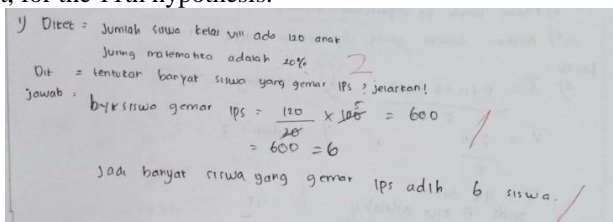 t, for the 11th hypothesis.
1) Diket = Jumlah siswa kelas VIII ada 120 anak
Juring matematika adalah 20% 2
Dit = tentukan banyak siswa yang gemar IPS ? jelaskan!
jawab :
byk siswa gemar IPS = 120/20 × 100 5 = 600
= 600 = 6
Jadi banyak siswa yang gemar IPS adlh 6 siswa.